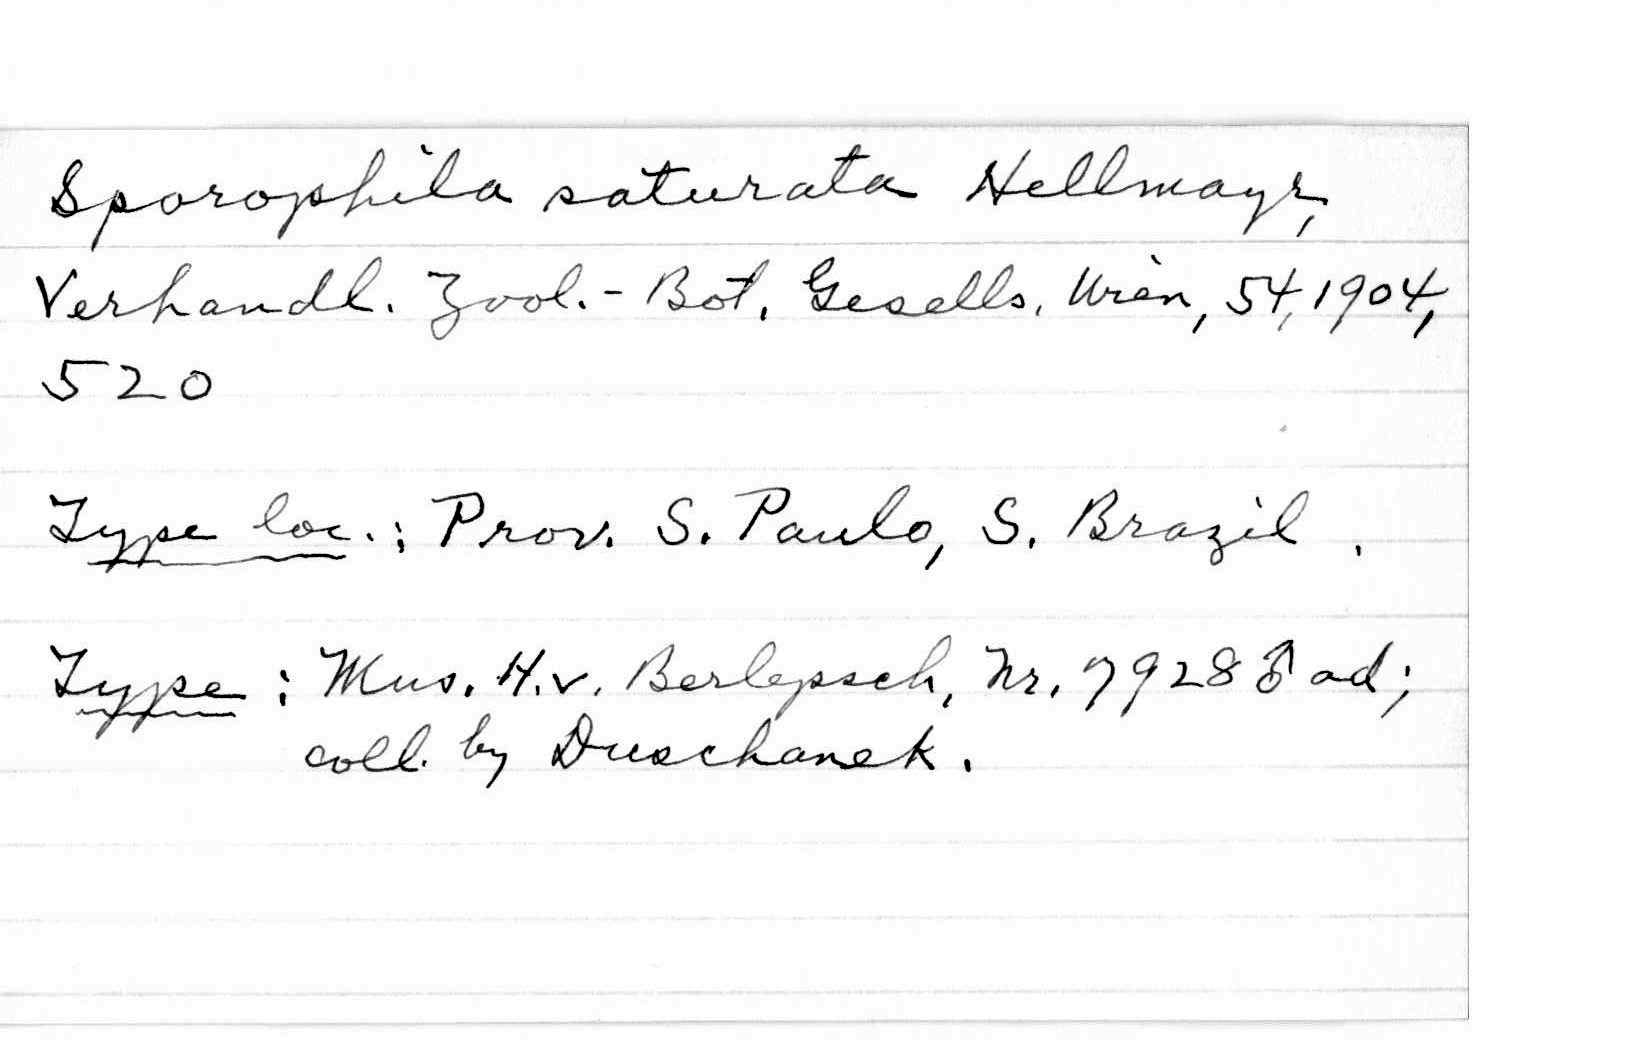 Sporophila saturata Hellmayr,
Verhandl. Zool.-Bot. Gesells. Wien, 54, 1904,
520
Type loc.: Prov. S. Paulo, S. Brazil.
Type: Mus. H.v. Berlepsch, Nr. 7928 ♂ ad;
coll. by Druschanek.